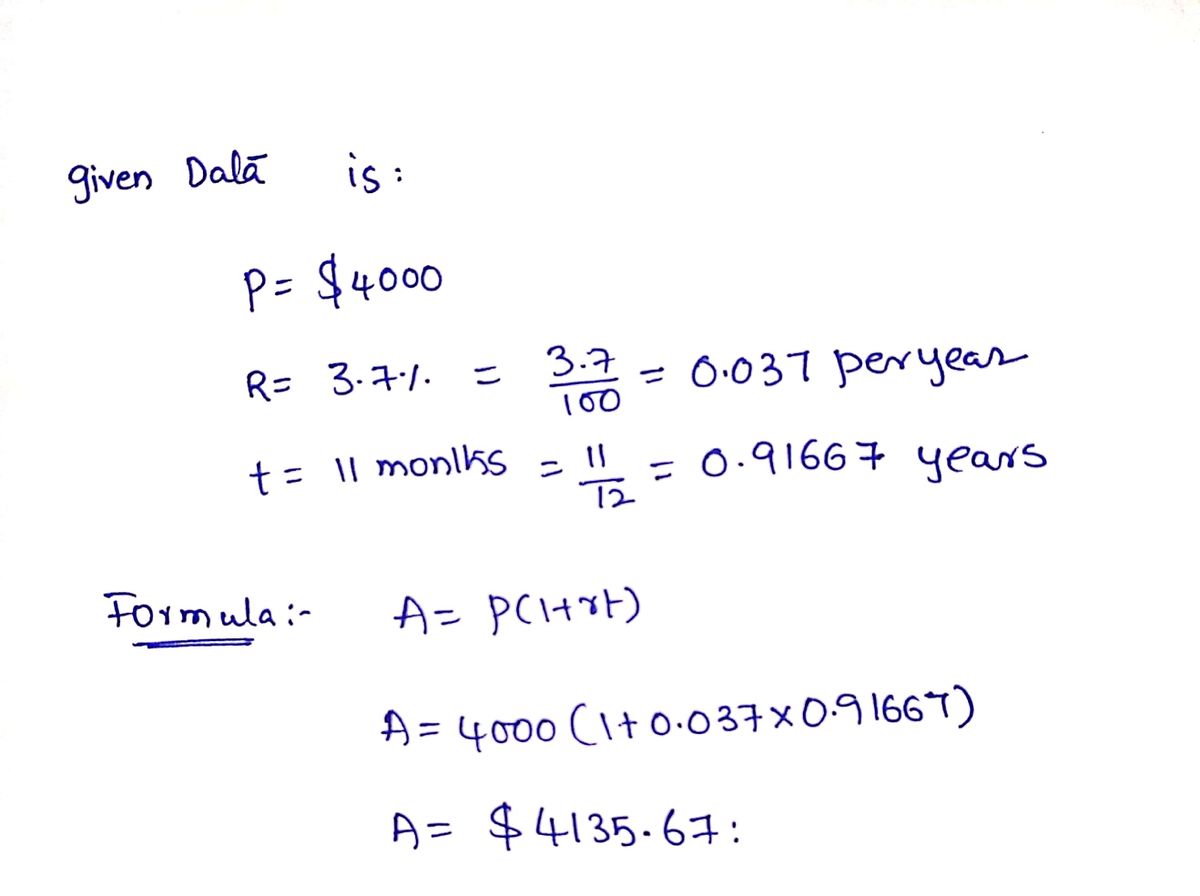 given Data is:
P= $4000
R= 3.7% = 3.7/100 = 0.037 per year
t= 11 months = 11/12 = 0.91667 years
Formula:- A= P(1+rt)
A= 4000 (1+0.037×0.91667)
A= $4135.67: